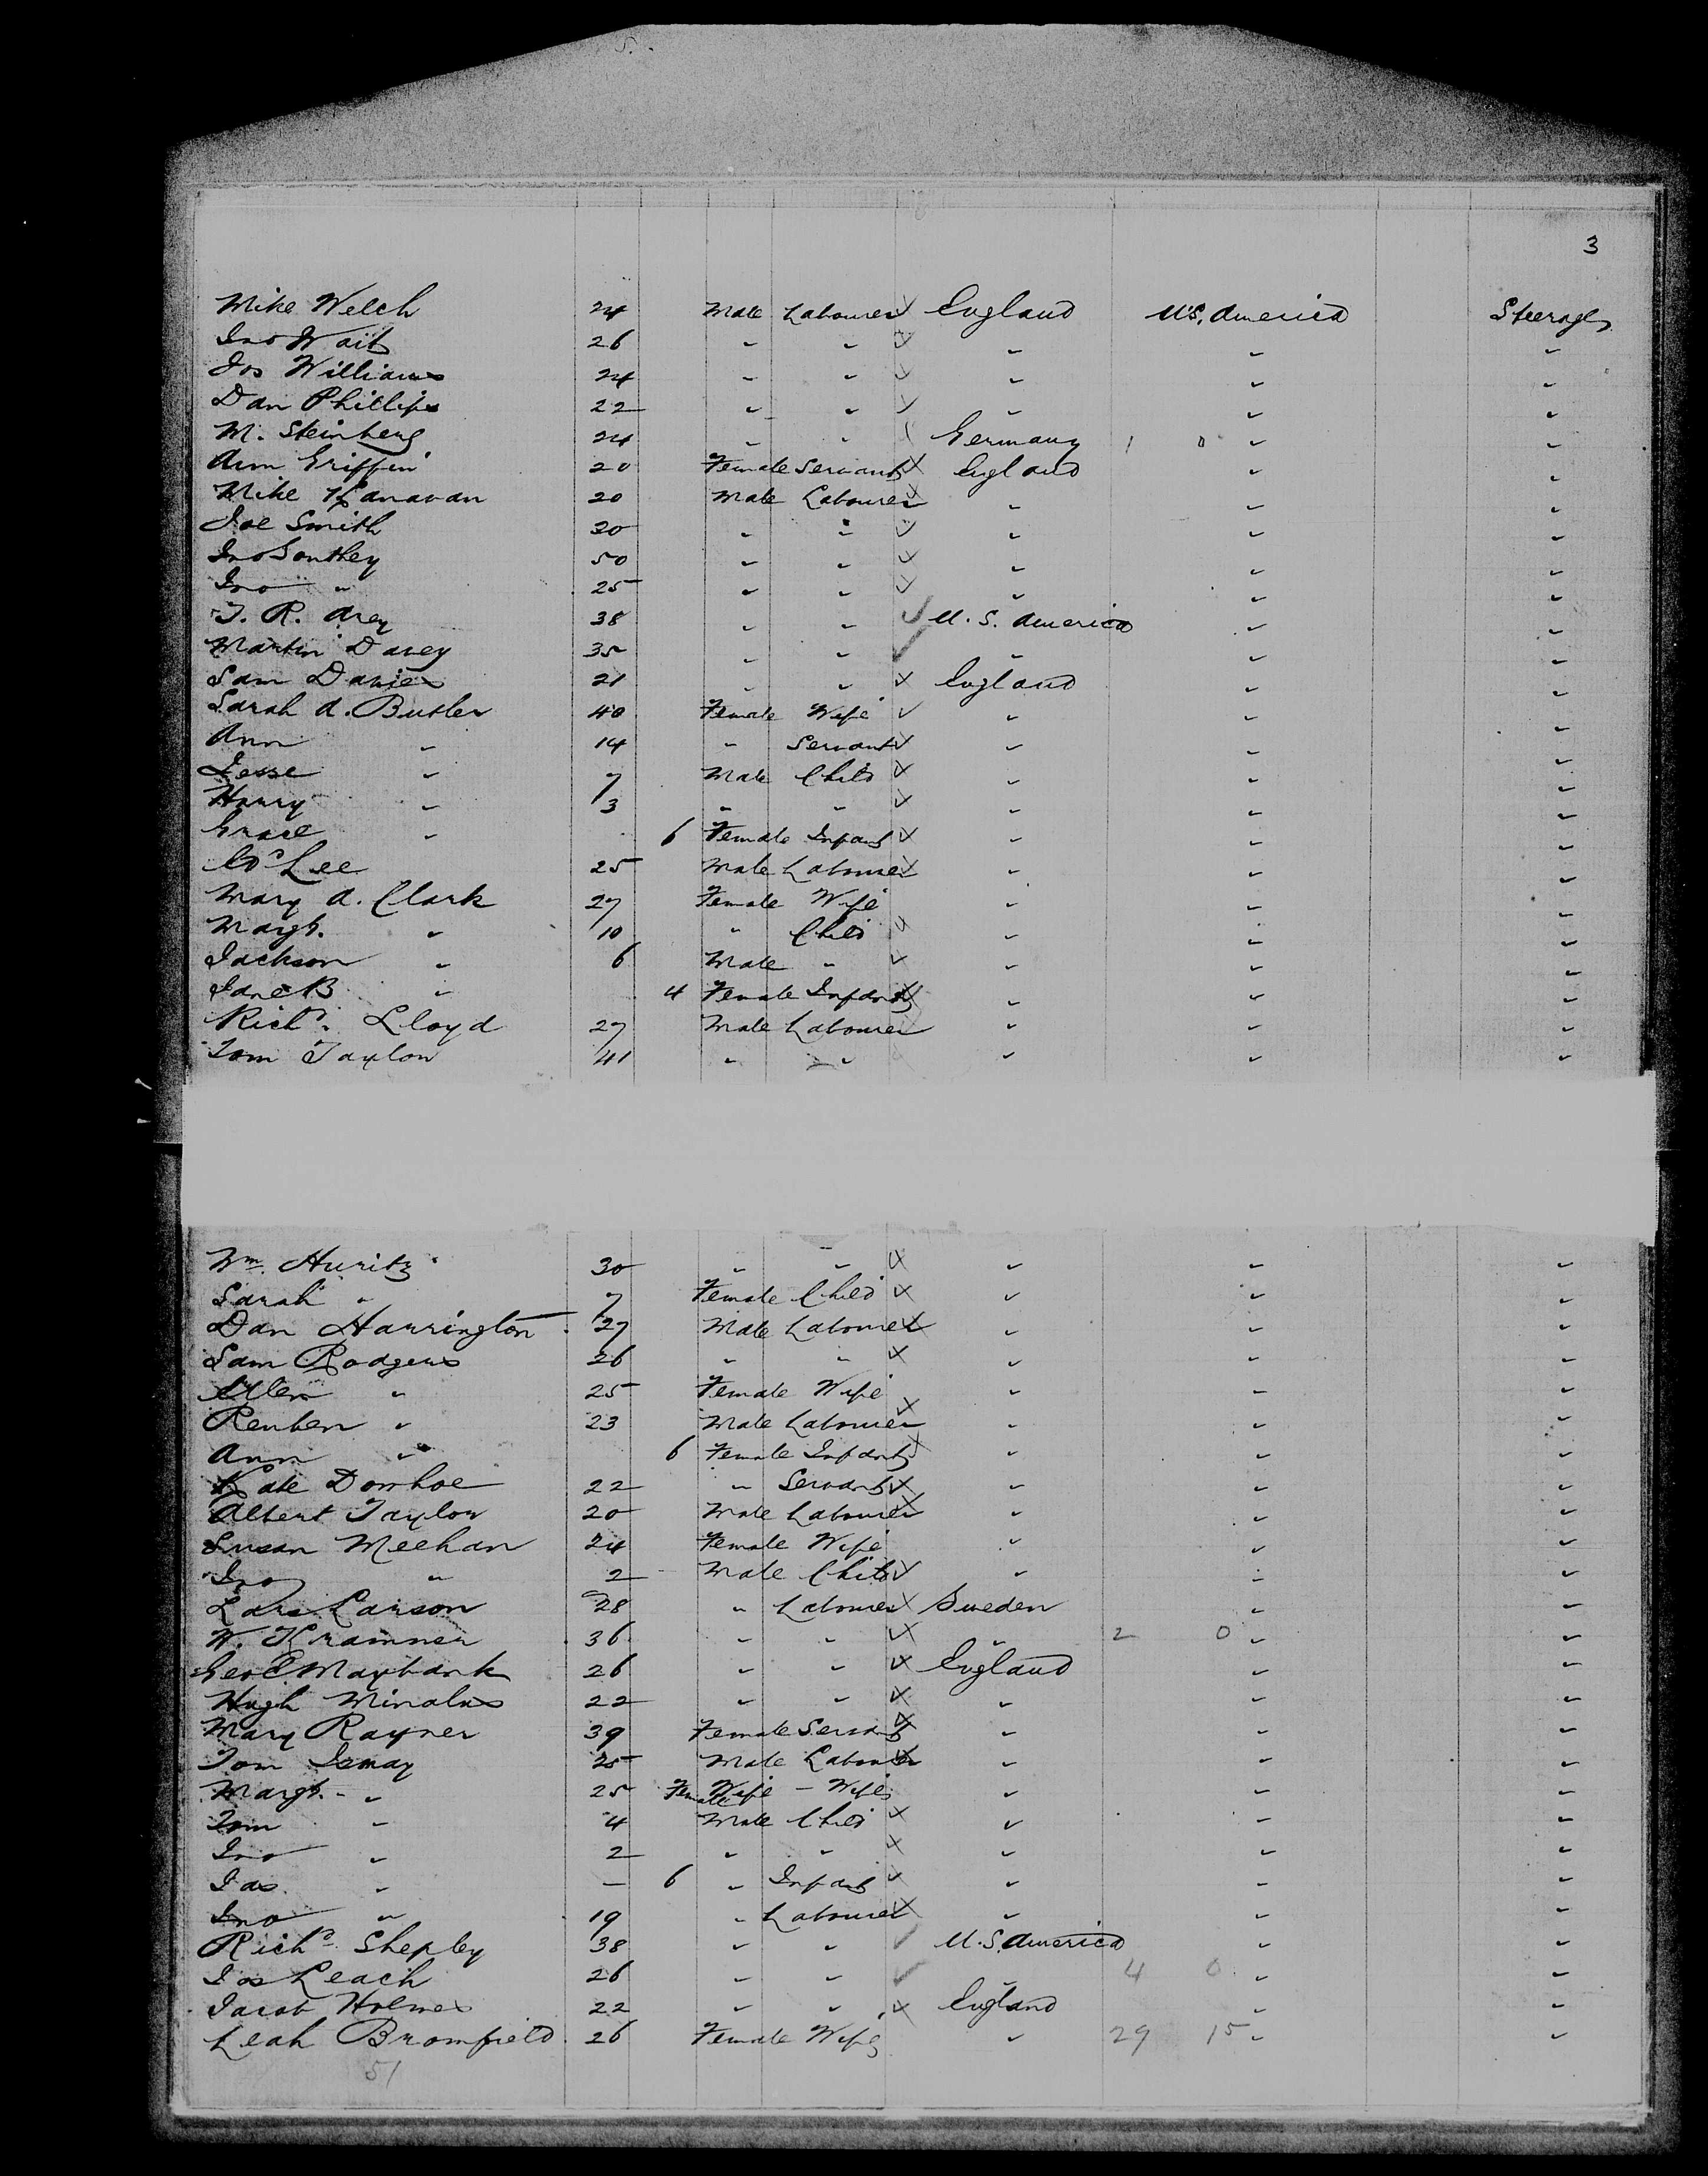 3
Mike Welch 24 Male Labourer England U.S. America Steerage
Jno Wait 26 " " " " "
Jos Williams 24 " " " " "
Dan Phillips 22 " " " " "
M. Steinberg 24 " " Germany 1 0 " "
Ann Griffin 20 Female Servant England " "
Mike Kanavan 20 Male Labourer " " "
Joe Smith 30 " " " " "
Jno Southey 50 " " " " "
Jno " 25 " " " " "
T. R. Arey 38 " " U.S. America " "
Martin Davey 35 " " " " "
Sam Davies 21 " " England " "
Sarah A. Butler 40 Female Wife " " "
Ann " 14 " Servant " " "
Jesse " 7 Male Child " " "
Harry " 3 " " " " "
Grace " 6 Female Infant " " "
Ed Lee 25 Male Labourer " " "
Mary A. Clark 27 Female Wife " " "
Margt. " 10 " Child " " "
Jackson " 6 Male " " " "
Jane B " 4 Female Infant " " "
Richd. Lloyd 27 Male Labourer " " "
Tom Taylor 41 " " " " "
Wm. Huritz 30 " " " " "
Sarah " 7 Female Child " " "
Dan Harrington 27 Male Labourer " " "
Sam Rodgers 26 " " " " "
Ellen " 25 Female Wife " " "
Reuben " 23 Male Labourer " " "
Ann " 6 Female Infant " " "
Kate Donhoe 22 " Servant " " "
Albert Taylor 20 Male Labourer " " "
Susan Meehan 24 Female Wife " " "
Jno " 2 Male Child " " "
Lars Larson 28 " Labourer Sweden " "
W. Kramner 36 " " " 2 0 " "
Geo E Maybank 26 " " England " "
Hugh 22 " " " " "
Mary Rayner 39 Female Servant " " "
Tom Ismay 25 Male Labourer " " "
Margt. " 25 Female Wife - Wife " " "
Tom " 4 Male Child " " "
Jno " 2 " " " " "
Jas. " — 6 " Infant " " "
Jno " 19 " Labourer " " "
Richd Shepley 38 " " U.S. America " "
Jos Leach 26 " " " 4 0 " "
Jacob Holmes 22 " " England " "
Leah Bromfield 26 Female Wife " 29 15 " "
51